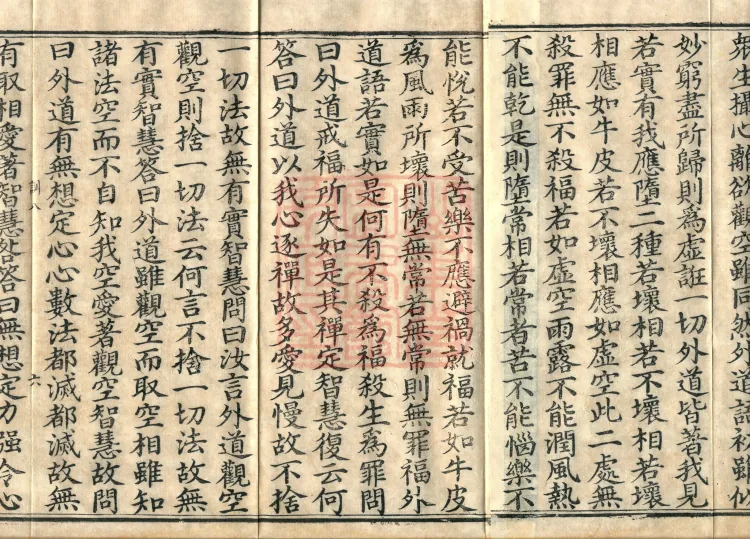 眾生攝心離欲觀空雖同然外道語初雖似
妙窮盡所歸則為虛誑一切外道皆著我見
若實有我應墮二種若壞相若不壞相若壞
相應如牛皮若不壞相應如虛空此二處無
殺罪無不殺福若如虛空雨露不能潤風熱
不能乾是則墮常相若常者苦不能惱樂不
能悅若不受苦樂不應避禍就福若如牛皮
為風雨所壞則墮無常若無常則無罪福外
道語若實如是何有不殺為福殺生為罪問
曰外道戒福所失如是其禪定智慧復云何
答曰外道以我心逐禪故多愛見慢故不捨
一切法故無有實智慧問曰汝言外道觀空
觀空則捨一切法云何言不捨一切法故無
有實智慧答曰外道雖觀空而取空相雖知
諸法空而不自知我空愛著觀空智慧故問
曰外道有無想定心心數法都滅都滅故無
有取相愛著智慧咎答曰無想定力強令心